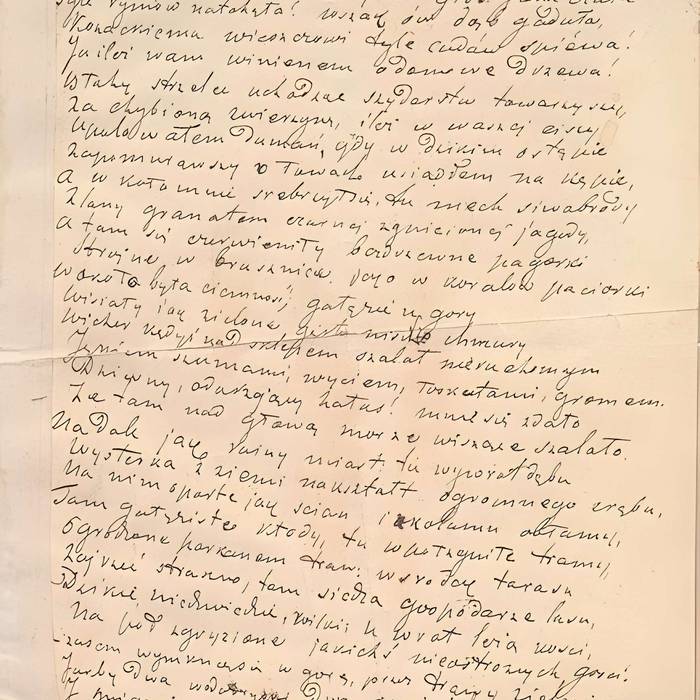 rymów natchnęła! wszak ów dąb gaduła,
Kozackiemu wieszczowi tyle cudów śpiéwa!
Ja ileż wam winienem o domowe drzewa!
Błahy strzelec uchodząc szyderstw towarzyszy,
Za chybioną zwierzynę, ileż w waszej ciszy
Upolowałem Dumań, gdy w dzikim ostępie
Zapomniawszy o łowach usiadłem na kępie,
A w koło mnie srebrzył się, tu mech siwobrody
Zlany granatem czarnej zgniecionej jagody,
A tam się czerwieniły pagórki
Strojne w brusznice, w koralów paciorki
W około była ciemność, gałęzie u góry
Wisiały jak zielone, gęste niskie chmury
Wicher kędyś nad sklepem szalał nieruchomym
Jękiem szumami, wyciem, łoskotami, gromem.
Dziwny, odurzający hałas! mnie się zdało
Że tam nad głową morze wiszące szalało.
Na dole jak ruiny miast: tu wywrot dębu
Wysterka z ziemi nakształt ogromnego zrębu,
Na nim oparte jak ścian i kolumn obłamy,
Tam gałęziste kłody, tu wpół zgniłe tramy,
Ogrodzone parkanem traw: w środek tarasu
Zajrzeć straszno, tam siedzą gospodarze lasu,
Dziki niedźwiedzie, wilki; u wrót leżą kości,
Na pół zgryzione jakichś nieostrożnych gości.
Czasem wymkną się w górę, przez trawy
Jakby Dwa